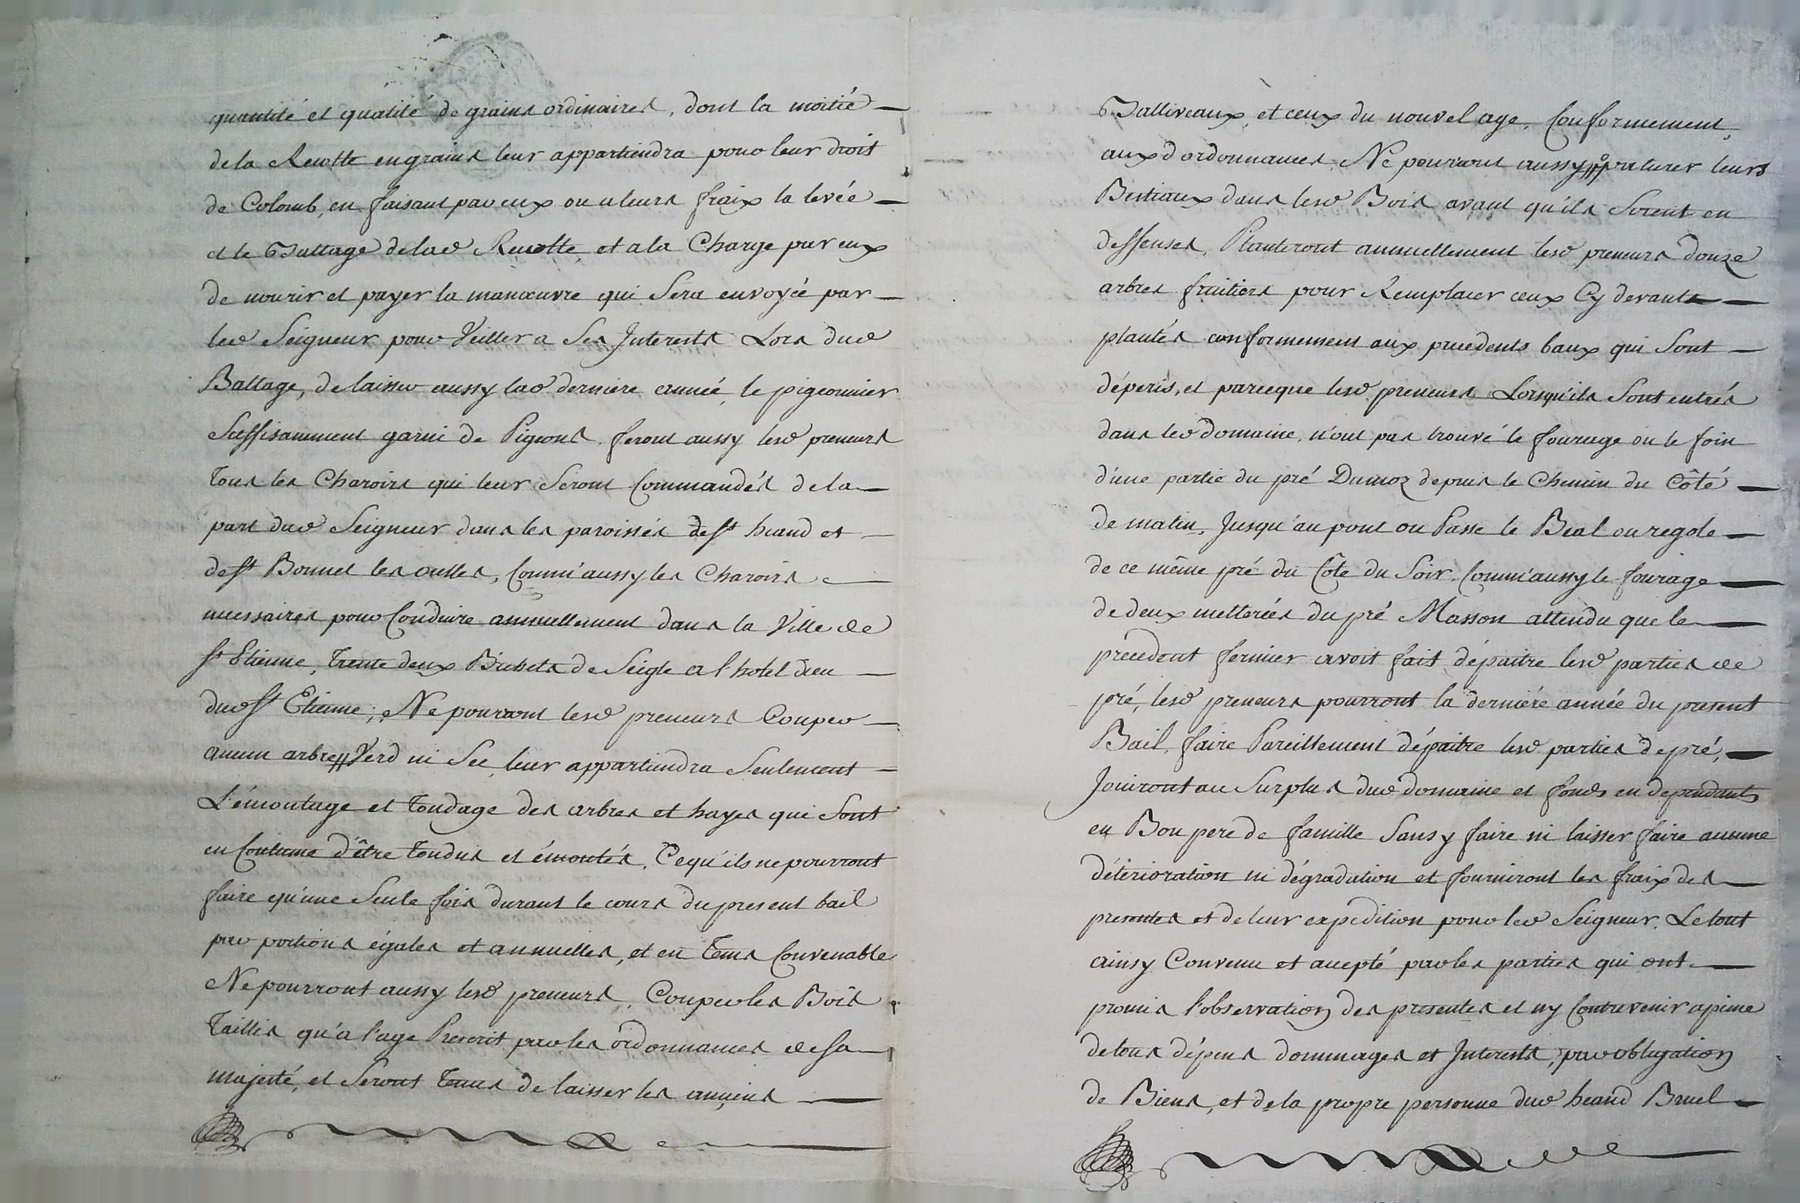 quantité et qualité de grains ordinaires, dont la moitié
de la Recolte en grains leur appartiendra pour leur droit
de Colomb, en faisant par eux ou a leurs fraix la levée
et le Battage de lad Recolte, et a la Charge par eux
de nourir et payer la manœuvre qui Sera envoyée par
led Seigneur pour Veiller a Ses Interests Lors dud
Battage, de laisser aussy lad derniere année, le pigeonnier
Suffisamment garni de Pigeons. feront aussy lesd preneurs
Tous les Charoirs qui leur Seront Commandés de la
part dud Seigneur dans les paroisses de st heand et
de st Bonnet les oulles, Comm'aussy les Charoirs
necessaires pour Conduire annuellement dans la Ville de
st Etienne, Trente deux Bichets de Seigle a l'hotel dieu
dud st Etienne; Ne pourront lesd preneurs Couper
aucun arbre Verd ni Sec, leur appartiendra Seulement
L'émontage et Tondage des arbres et hayes qui Sont
en Coutume d'être Tondus et émontés, Ce qu'ils ne pourront
faire qu'une Seule fois durant le cours du present bail
par portions égales et annuelles, et en Tems Convenable
Ne pourront aussy lesd preneurs, Couper les Bois
Taillis qu'a l'age Prescrit par les ordonnances de sa
majesté, et Seront Tenus de laisser les anciens
Balliveaux, et ceux du nouvel age, Conformement
auxd ordonnances. Ne pourront aussy paturer leurs
Bestiaux dans lesd Bois avant qu'ils Soient en
deffenses, Planteront annuellement lesd preneurs douze
arbres fruitiers pour Remplacer ceux Cy devant
plantés conformement aux precedents baux qui Sont
déperis, et parceque lesd preneurs Lorsqu'ils Sont entrés
dans led domaine, n'ont pas trouvé le fourage ou le foin
d'une partie du pré Dumoz depuis le Chemin du Côté
de matin, Jusqu'au pont ou Passe le Béal ou regole
de ce même pré du Côté du Soir, Comm'aussy le fourage
de deux metterées du pré Masson attendu que le
precedent fermier avoit fait dépaitre lesd parties de
pré, lesd preneurs pourront la derniére année du present
Bail, faire Pareillement dépaitre lesd parties de pré,
Jouiront au Surplus dud domaine et fonds en dependants
en Bon pere de famille Sans y faire ni laisser faire aucune
détérioration ni dégradation et fourniront les fraix des
presentes et de leur expedition pour led Seigneur. Le tout
ainsy Convenu et accepté par les parties qui ont
promis l'observation des presentes et ny Contrevenir a peine
de tous dépens dommages et Interests, par obligation
de Biens, et de la propre personne dud heand Bruel